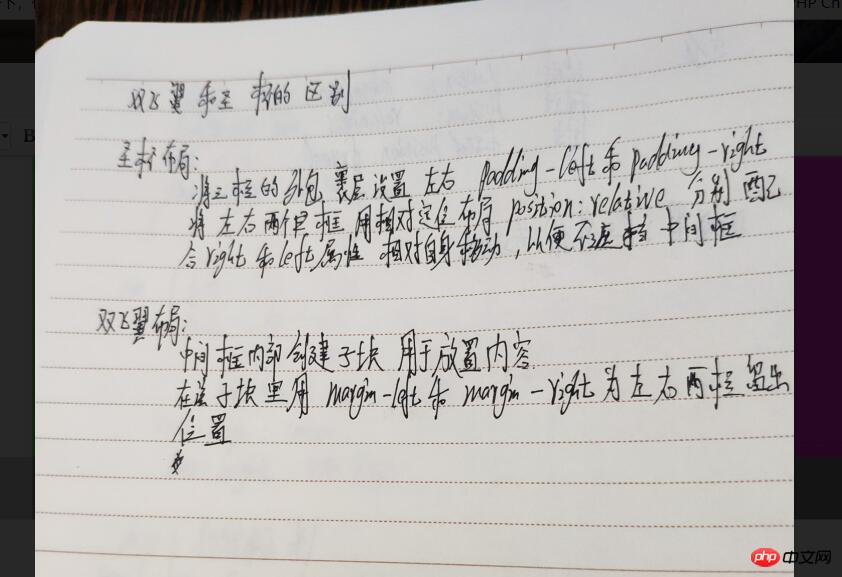 双飞翼和圣杯的区别
圣杯布局:
将三栏的外包裹层设置 左右 padding-left和padding-right
将左右两个栏 用相对定位布局 position:relative 分别配
合right和left属性 相对自身移动,以便不遮挡中间栏
双飞翼布局:
中间栏内部创建子块 用于放置内容
在该子块里用 margin-left和 margin-right为左右两栏留出
位置
php中文网